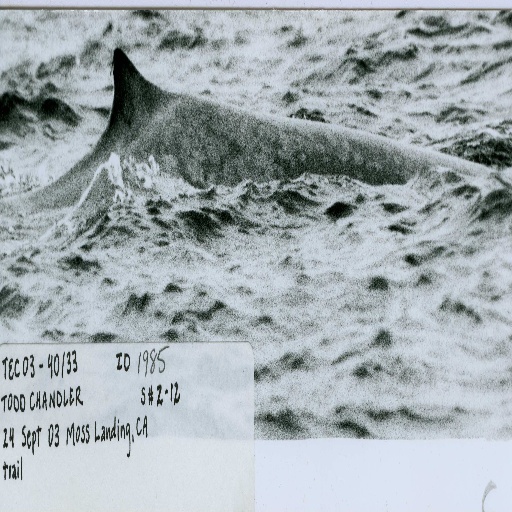 TEC03-40/33 ID 1985
TODD CHANDLER S#2-12
24 Sept 03 Moss Landing, CA
trail